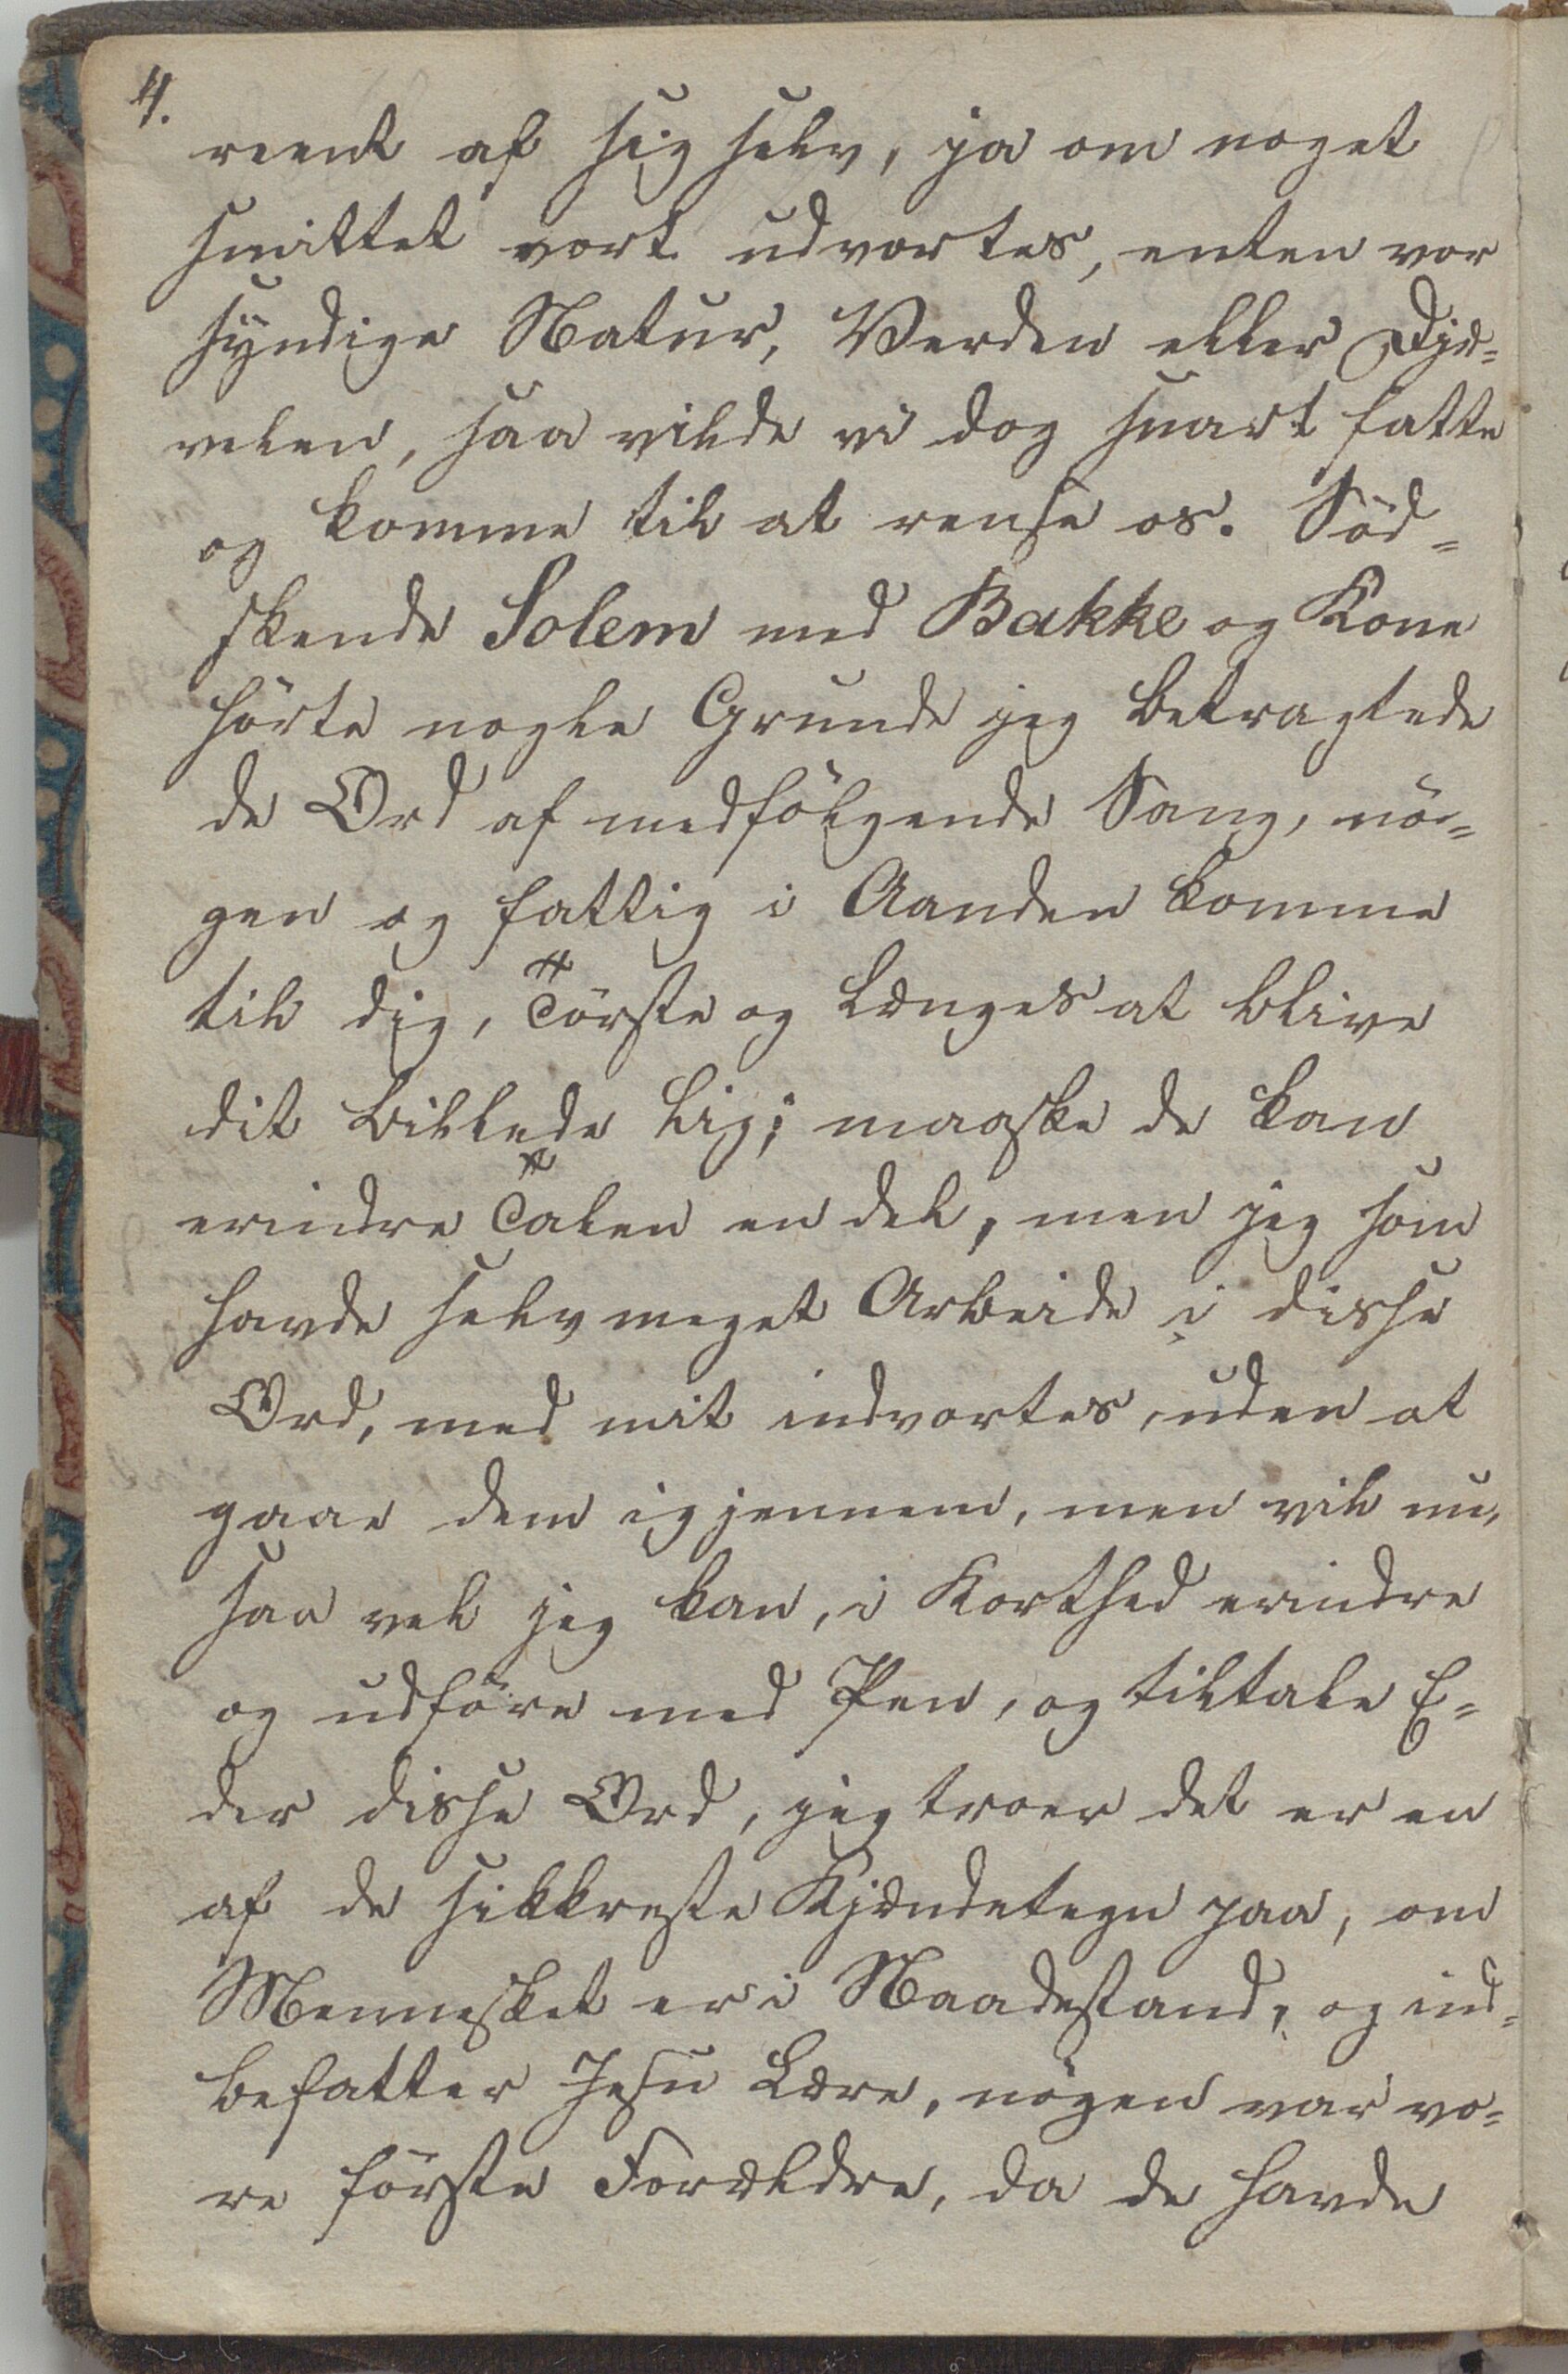 4.
reent af sig selv, ja om noget
smittet vort udvortes, enten vor
syndige Natur, Verden eller Djæ=
velen, saa vilde vi dog snart fatte
og komme til at rense os. Söd=
skende Solem med Bakke og Kone
hörte nogle Grunde jeg betragtede
de Ord af medfölgende Sang, nö=
gen og fattig i Aanden komme
til dig, Törste og længes at blive
dit billede lig; maaske de kan
erindre Talen en del, men jeg som
havde selv meget Arbeide i disse
Ord, med mit indvortes, uden at
gaae dem igjennem, men vil nu,
saa vel jeg kan, i Korthed erindre
og udföre med Pen, og tiltale E=
der disse Ord, jeg troer det er en
af de sikkreste Kjændetegn paa, om
Mennesket er i Naadestand, og ind=
befatter Jesu Lære, nögen var vo=
re förste Forældre, da de havde